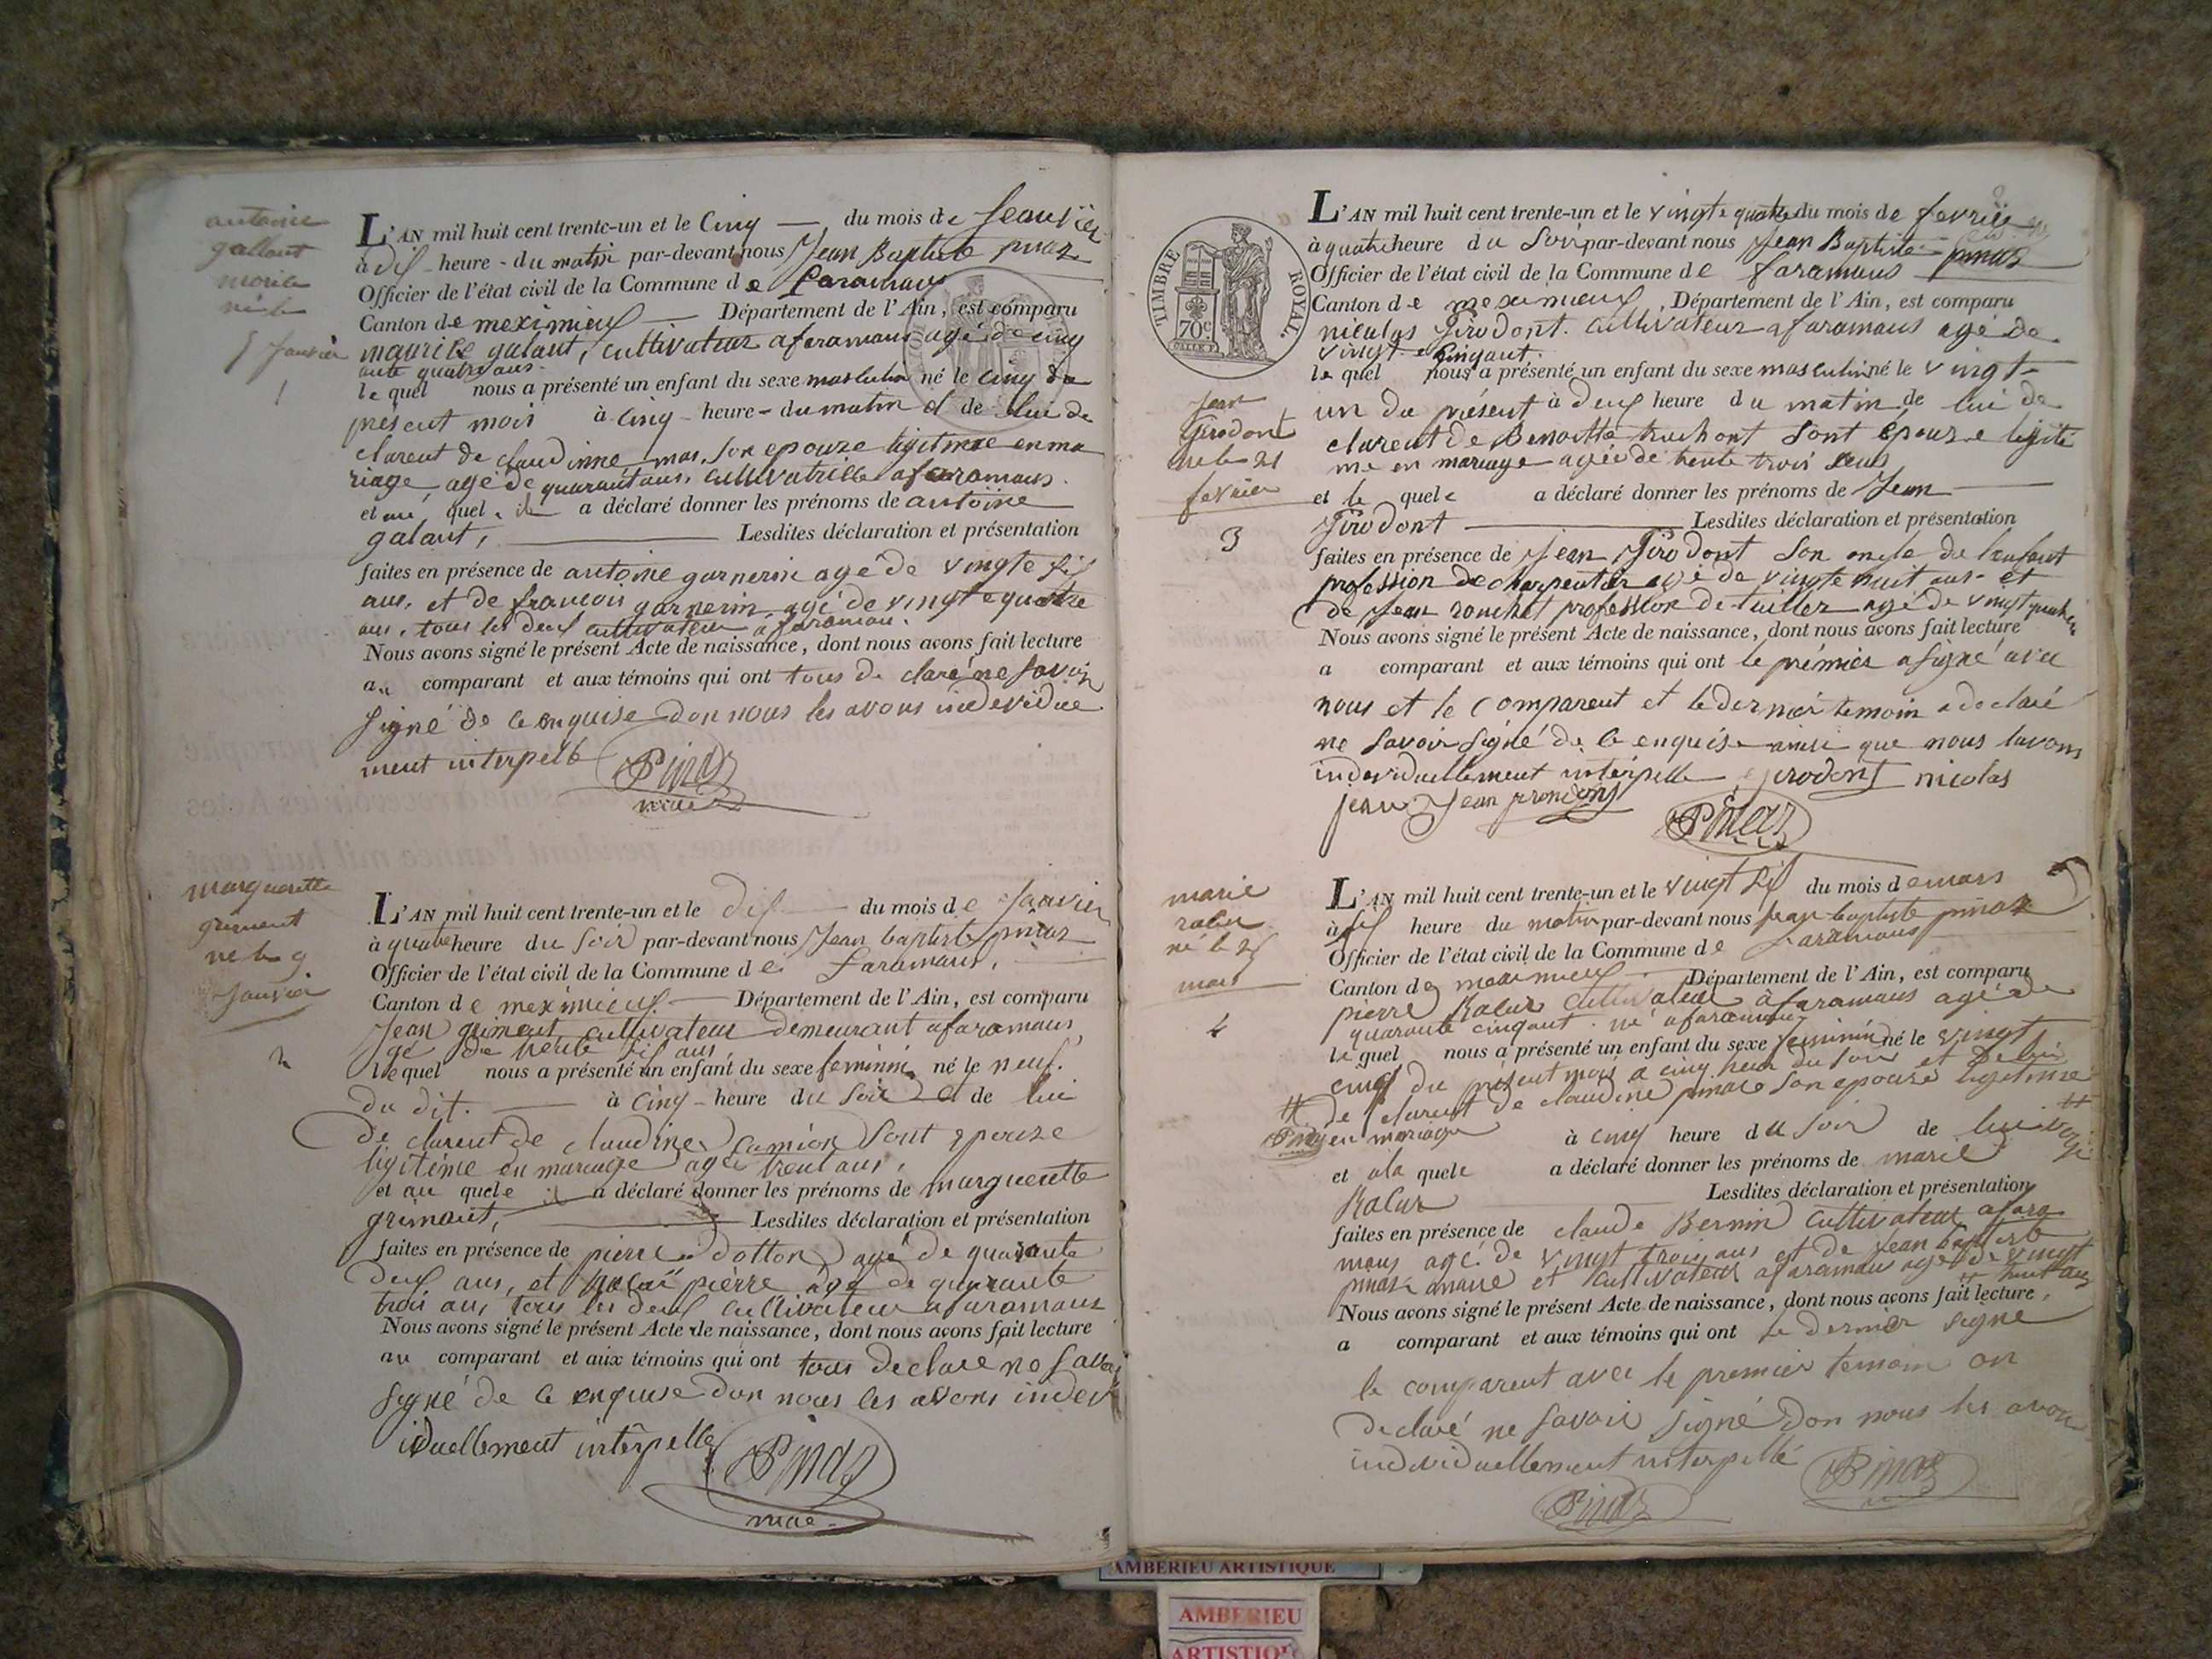 antoine
gallant
né le
5 Janvier
1
L'AN mil huit cent trente-un et le Cinq du mois de Jeanvier
à dix heure du matin par-devant nous Jean Baptiste pinaz
Officier de l'état civil de la Commune de faramans
Canton de meximieux Département de l'Ain, est comparu
maurice galant, cultivateur a faramans agé de cinq
ante quatre ans
le quel nous a présenté un enfant du sexe masculin né le cinq du
présent mois à cinq heure du matin et de lui de
clarent de claudinne mas, son epouze legitime en ma
riage, agé de quarant ans, cultivatrice a faramans.
et au quel il a déclaré donner les prénoms de antoine
galant, Lesdites déclaration et présentation
faites en présence de antoine garnerin agé de vingte six
ans, et de francois garnerin, agé de vingt e quatre
ans, tous les deux cultivateur a faramans.
Nous avons signé le présent Acte de naissance, dont nous avons fait lecture
au comparant et aux témoins qui ont tous de claré ne savoir
signé de ce enquise don nous les avons indevidue
ment interpellé Pinaz
maire
margueritte
grimant
né le 9
Janvier
2
L'AN mil huit cent trente-un et le dix du mois de Janvier
à quatre heure du soir par-devant nous Jean baptiste pinaz
Officier de l'état civil de la Commune de faramans,
Canton de meximieux. Département de l'Ain, est comparu
Jean grimant cultivateur demeurant a faramans,
gé de trente six ans,
le quel nous a présenté un enfant du sexe feminin né le neuf.
du dit. à Cinq heure du soir et de lui
de clarent de claudine Camion sont epouze
ligitime en mariage agé trent ans,
et au quele il a déclaré donner les prénoms de margueritte
grimant, Lesdites déclaration et présentation
faites en présence de pierre dotton agé de quarante
deux ans, et pierre age de quarante
trois ans, tous les deux cultivateur a faramans
Nous avons signé le présent Acte de naissance, dont nous avons fait lecture
au comparant et aux témoins qui ont tous declaré ne savoir
signé de ce enquise don nous les avons indev
iduellement interpellé Pinaz
maire
TIMBRE ROYAL.
70c
Jean
Girodont
né le 21
fevrier
3
L'AN mil huit cent trente-un et le vingt e quatre du mois de fevrier
à quatre heure du Soir par-devant nous Jean Baptiste pinaz
Officier de l'état civil de la Commune de faramans
Canton de meximieux Département de l'Ain, est comparu
nicolas Girodont. cultivateur a faramans agé de
vingt e cinq ant.
le quel nous a présenté un enfant du sexe masculin né le vingt
un du présent à deux heure du matin de lui de
clarent de Benoitte truchont sont epouze legiti
me en mariage agée de trente trois ans
et le quele a déclaré donner les prénoms de Jean
Girodont Lesdites déclaration et présentation
faites en présence de Jean Girodont son oncle de lenfant
profession de charpentier agé de vingte huit ans et
de Jean profession de tailler agé de vingt quatre
Nous avons signé le présent Acte de naissance, dont nous avons fait lecture
a comparant et aux témoins qui ont le prémier a signé avec
nous et le comparent et le dernier temoin a declaré
ne savoir signé de ce enquise ainsi que nous lavons
indeviduellement interpellé girodont nicolas
jean Jean
Pinaz
marie
né le 25
mars
4
L'AN mil huit cent trente-un et le vingt six du mois de mars
à dix heure du matin par-devant nous Jean baptiste pinaz
Officier de l'état civil de la Commune de faramans
Canton de meximieux Département de l'Ain, est comparu
pierre Ralur cultivateur a faramans agé de
quarante cinq ant. né a faramans
le quel nous a présenté un enfant du sexe feminin né le vingt
cinq du présent mois a cinq heur du soir et de lui
de clarent de claudine pinaz son epouze legitime
Pinaz en mariage à cinq heure du soir de lui
et a la quele a déclaré donner les prénoms de marie
Ralur Lesdites déclaration et présentation
faites en présence de claude Bernin cultivateur a fara
mans agé de vingt trois ans et de jean baptiste
pinaz et cultivateur a faramans agé de vingt
huit ans
Nous avons signé le présent Acte de naissance, dont nous avons fait lecture,
a comparant et aux témoins qui ont le dernier signé
le comparent avec le premier temoin on
declaré ne savoir signé don nous les avon
individuellement interpellé Pinaz
Pinaz
AMBERIEU ARTISTIQUE
AMBERIEU
ARTISTIQUE